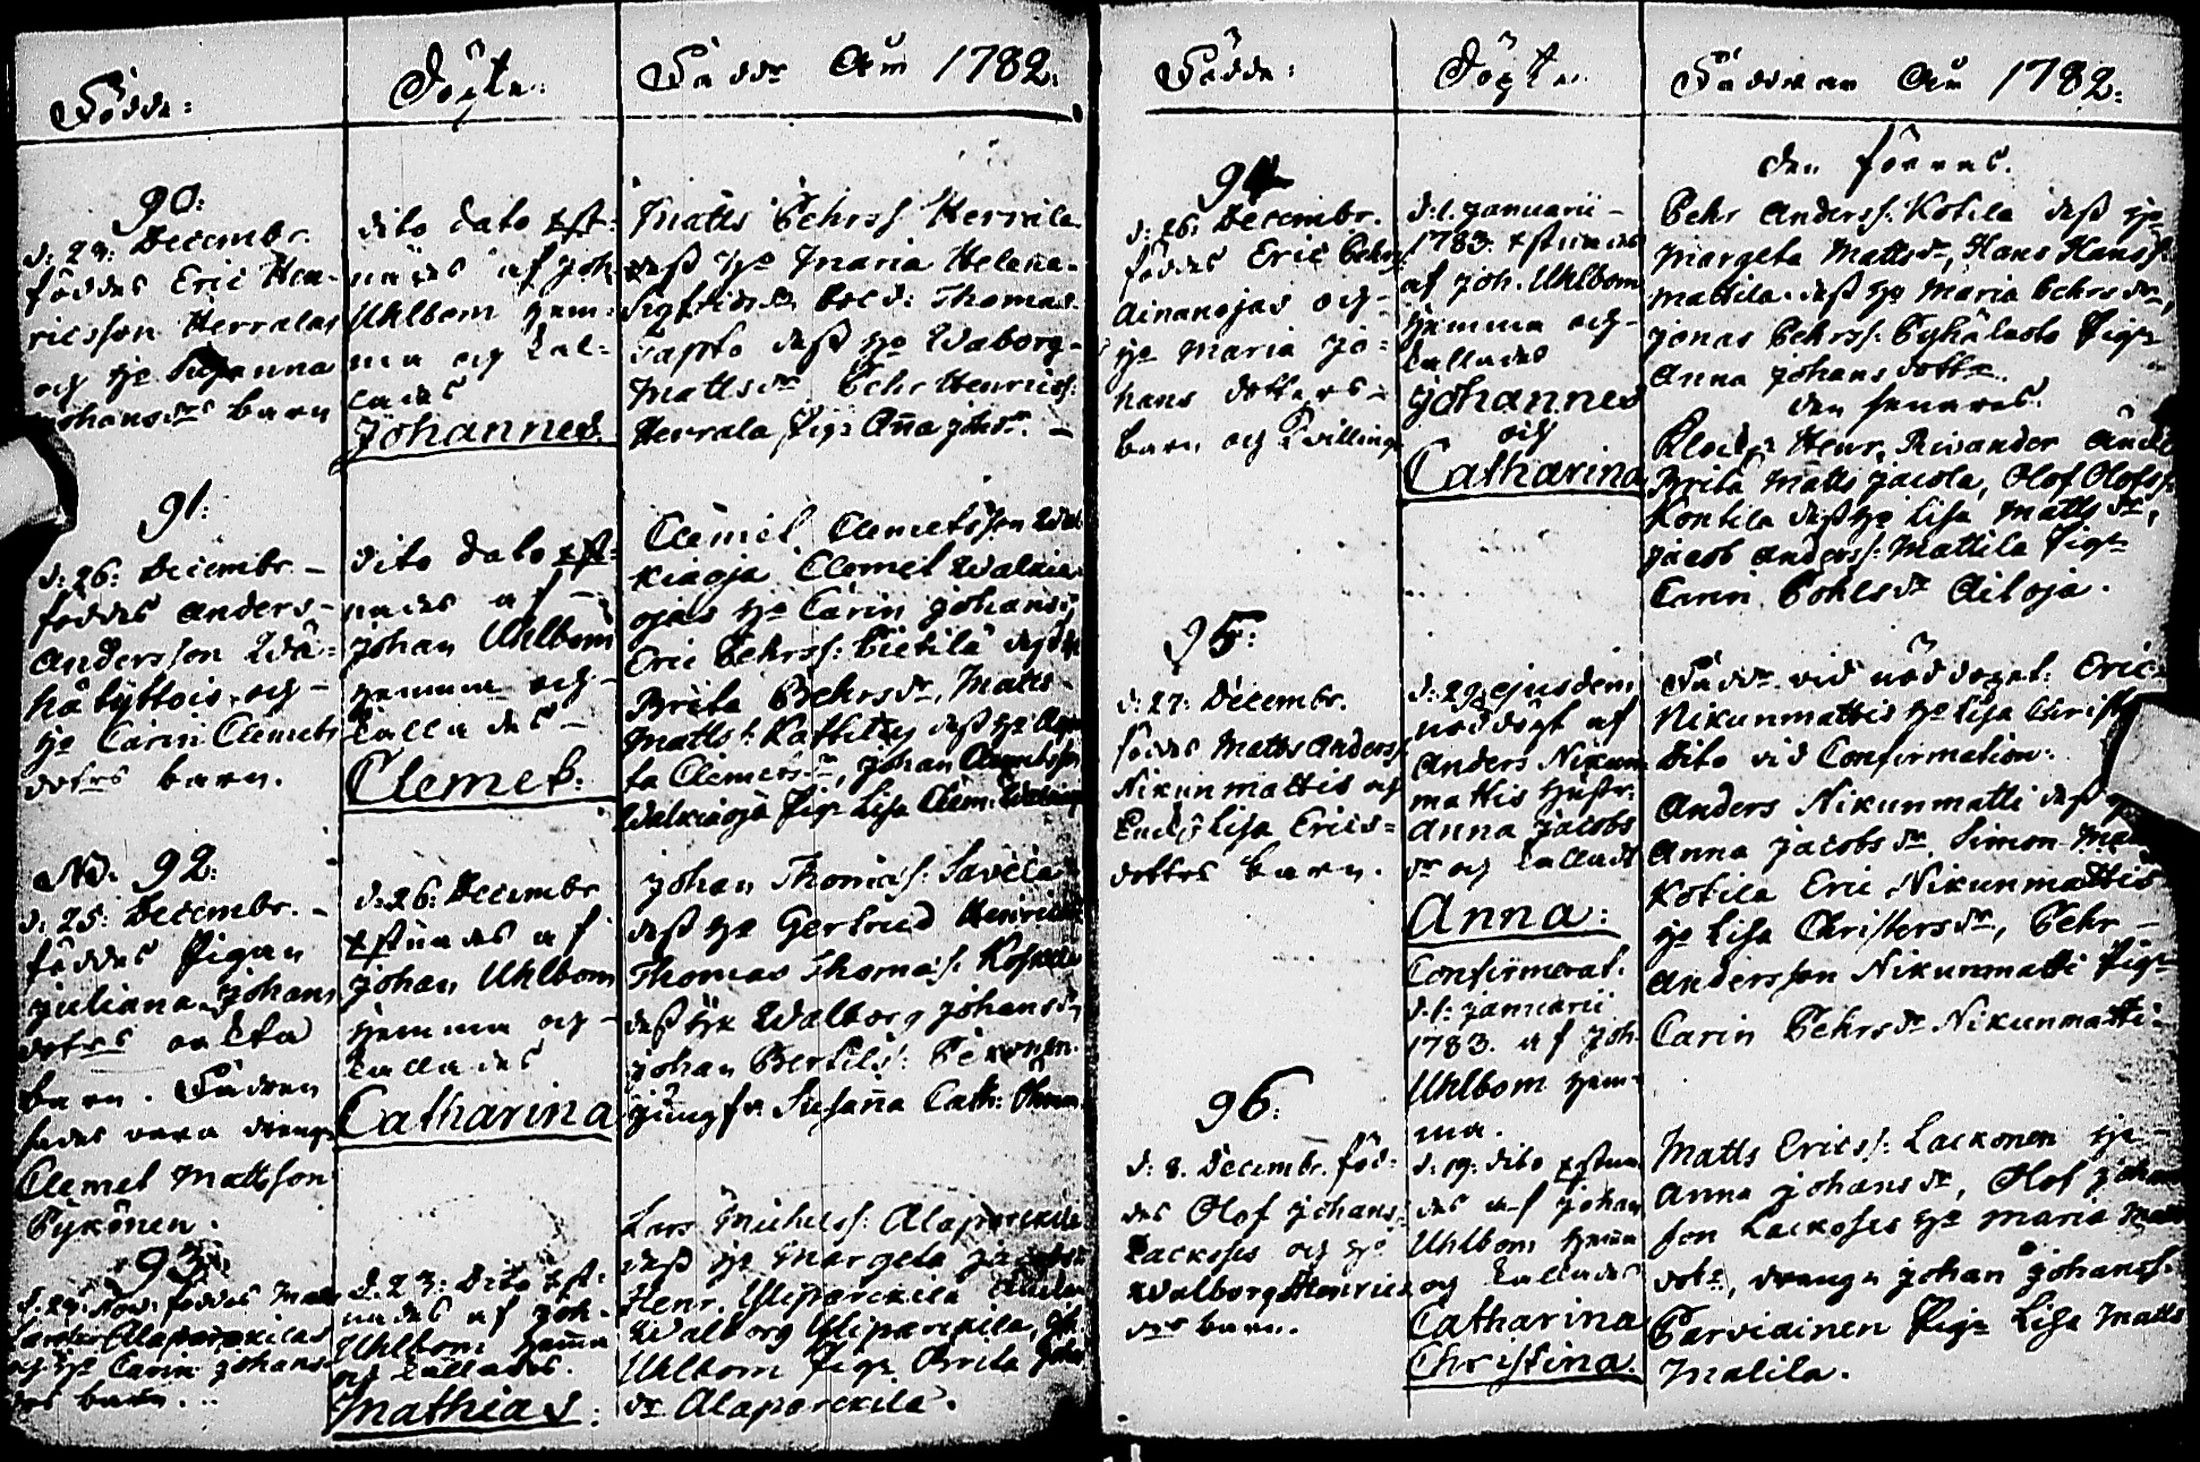 Födde:
Döpte:
Faddr Año 1782:
90:
d: 23: Decembr.
föddes Eric Hen-
ricsson Herralas
och h:o Susanna
Johansdrs barn
dito dato xst-
nades af Joh
Uhlbom hem-
ma och kal-
lades
Johannes.
Matts Pehrss: Herrala
dess h:o Maria Helena
Sigfridsdr, Thomas
dess h:o Waborg
Mattsdr Pehr Henricss:
Herrala, Pig: Aña Johsdr. -
91:
d: 26: Decembr. -
föddes Anders -
Andersson Wä-
hätyttois och -
h:o Carin Clemets
dotrs barn.
dito dato xst-
nades af -
Johan Uhlbom
hemma och -
kallades -
Clemet:
Clemet Clemetsson
kiaoja Clemet Walkia-
ojas h:o Carin Johansdr
Eric Pehrss: Pietilä dess h:o
Brita Pehrsdr, Matts
Mattss: dess h:o
ta Clemetsdr, Johan Clemetsson
Walkiaoja Pig: Lisa Clem:
No: 92:
d: 25: Decembr. -
föddes Pigan
Juliana Johans
dotrs oächta
barn. Fadren
sades vara dreng
Clemet Mattsson
Pykönen.
d: 26: Decembr
xstnades af
Johan Uhlbom
hemma och -
kallades
Catharina
Johan Thomass: Savela
dess h:o Gertrud Henricsdr
Thomas Thomass: Koskela
dess h:o Walborg Johansdr
Johan Bertilss:
Jungfr: Susaña Cath:
93:
d: 23: föddes Matts
Alaparckilas
och h:o Carin Johans
drs barn.
d. 23: Dito xst-
nades af Joh-
Uhlbom hema
och kallades.
Mathias:
Lars Michelss: Alaparckila
dess h:o Margeta Jacobsdr
Henr. Yliparckila
Walborg Yliparckila, Joh
Uhlbom Pig: Brita Joh
dr Alaparckila.
Födde:
Döpte
Faddrar Año 1782:
94
d: 26: Decembr.
föddes Eric Pehrs
Ainanojas och -
h:o Maria Jo-
hans dotters -
barn och Tvilling
d: 1. Januarii -
1783: xstnades
af Joh. Uhlbom
hemma och -
kallades
Johannes
och
Catharina
den förras.
Pehr Anderss: Kotila dess h:o
Margeta Mattsdr, Hans Hanss:
Mattila dess h:o Maria Pehrsdr,
Jonas Pehrss: Pyhälasto Pig:
Anna Johans dotter.
den senares.
Klock: Henr. Rivander
Brita Matts Jacola, Olof Olofss:
Kontila dess h:o Lisa Mattsdr,
Jacob Anderss: Mattila Pig:
Carin Pohlsdr Ailoja.
95:
d: 27: Decembr.
föddes Matts Anders
Nikunmattis och
Lisa Erics-
dotters barn.
d: 29. ejusdem
nöddöpt af
Anders Nikun
mattis hustr:
Anna Jacobs
dr och kallades
Anna:
Confirmerat.
d. 1: Januarii
1783. af Joh.
Uhlbom hem-
ma.
Faddr vid nöddopet: Eric
Nikunmattis h:o Lisa Christ
Dito vid Confirmation:
Anders Nikunmatti dess h:o
Anna Jacobsdr, Simon
Kotila Eric Nikunmattis
h:o Lisa Christersdr, Pehr -
Andersson Nikunmatti Pig:
Carin Pehrsdr Nikunmatti:
96:
d: 8. Decembr. föd-
des Olof Johans
Lackoses och h:o
Walborg Henrics
drs barn.
d: 19: dito xstna-
des af Johan
Uhlbom hema
och kallades
Catharina
Christina.
Matts Ericss: Lackonen h:o -
Anna Johansdr, Olof Johans
son Lackoses h:o Maria Matts
dotr, drengn Johan Johanss:
Parviainen Pig: Lisa Matts
Malila.